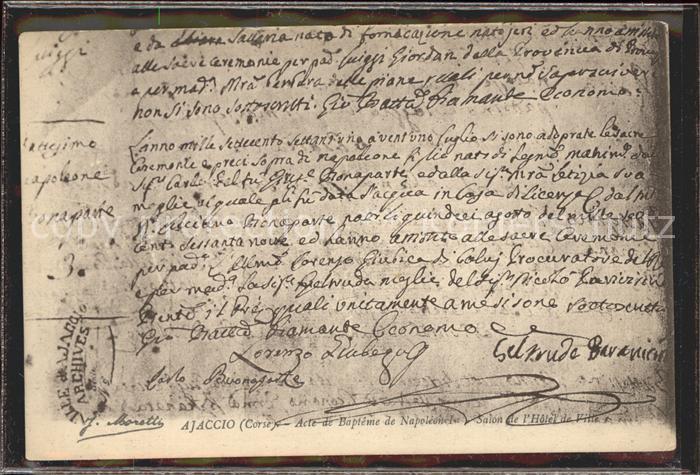 e da Chiara Saveria nata di fornacazione nato jeri ed le hanno assistito
alle Sacre Ceremonie per pad. Luiggi Giordan della Provincia di
e per mad. Mra Barbara delle piane quali per non saper scriver
non si sono sottoscritti. Gio Batta Diamante Economo
L'anno mille settecento settant'uno a vent'uno Luglio si sono adoprate le sacre
Ceremonie e preci sopra di napoleone figlio nato di legmo matrimo dal
Sigr Carlo del fu Gius Bonaparte e dalla Sigra Mra Letizia sua
moglie al quale gli fu data l'acqua in Casa di licenza dal
Luciano Bonaparte nato li quindeci agosto del mille sette
cento sessanta nove ed hanno assistito alle sacre Ceremonie
per padno l'Illmo Lorenzo Giubica di Calvi Procuratore del
e per madna la Sigra Geltruda moglie del Sigr Nicolò Paravicini
Presente il Pre quali unitamente a me si sono sottoscritti
Gio Batta Diamante Economo
Lorenzo Giubega
Geltruda Paravicini
Carlo Buonaparte
Luiggi
napoleone
Bonaparte
3.
VILLE d'AJACCIO
ARCHIVES
J. Moretti
AJACCIO (Corse). - Acte de Baptême de Napoléon Ier - Salon de l'Hôtel de Ville